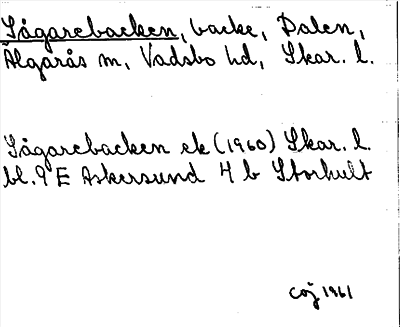 Sågarebacken, backe, Dalen,
Älgarås sn, Vadsbo hd, Skar. l.
Sågarebacken ek (1960) Skar. l.
bl. 9E Askersund 4 b Storhult
COJ 1961